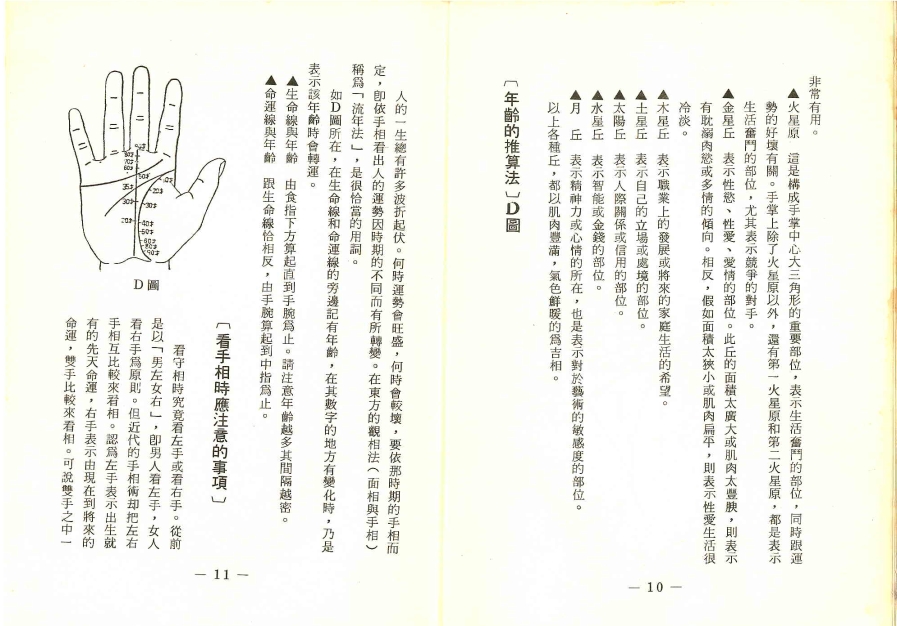 非常有用。
▲火星原　這是構成手掌中心大三角形的重要部位，表示生活奮鬥的部位，同時跟運
勢的好壞有關。手掌上除了火星原以外，還有第一火星原和第二火星原，都是表示
生活奮鬥的部位，尤其表示競爭的對手。
▲金星丘　表示性慾、性愛、愛情的部位。此丘的面積太廣大或肌肉太豐腴，則表示
有耽溺肉慾或多情的傾向。相反，假如面積太狹小或肌肉扁平，則表示性愛生活很
冷淡。
▲木星丘　表示職業上的發展或將來的家庭生活的希望。
▲土星丘　表示自己的立場或處境的部位。
▲太陽丘　表示人際關係或信用的部位。
▲水星丘　表示智能或金錢的部位。
▲月　丘　表示精神力或心情的所在，也是表示對於藝術的敏感度的部位。
以上各種丘，都以肌肉豐滿，氣色鮮暖的爲吉相。
〔年齡的推算法〕D圖
— 10 —
人的一生總有許多波折起伏。何時運勢會旺盛，何時會較壞，要依那時期的手相而
定，卽依手相看出人的運勢因時期的不同而有所轉變。在東方的觀相法（面相與手相）
稱爲「流年法」，是很恰當的用詞。
如D圖所在，在生命線和命運線的旁邊記有年齡，在其數字的地方有變化時，乃是
表示該年齡時會轉運。
▲生命線與年齡　由食指下方算起直到手腕爲止。請注意年齡越多其間隔越密。
▲命運線與年齡　跟生命線恰相反，由手腕算起到中指爲止。
D圖
〔看手相時應注意的事項〕
看守相時究竟看左手或看右手。從前
是以「男左女右」，卽男人看左手，女人
看右手爲原則。但近代的手相術却把左右
手相互比較來看相。認爲左手表示出生就
有的先天命運，右手表示由現在到將來的
命運，雙手比較來看相。可說雙手之中一
— 11 —